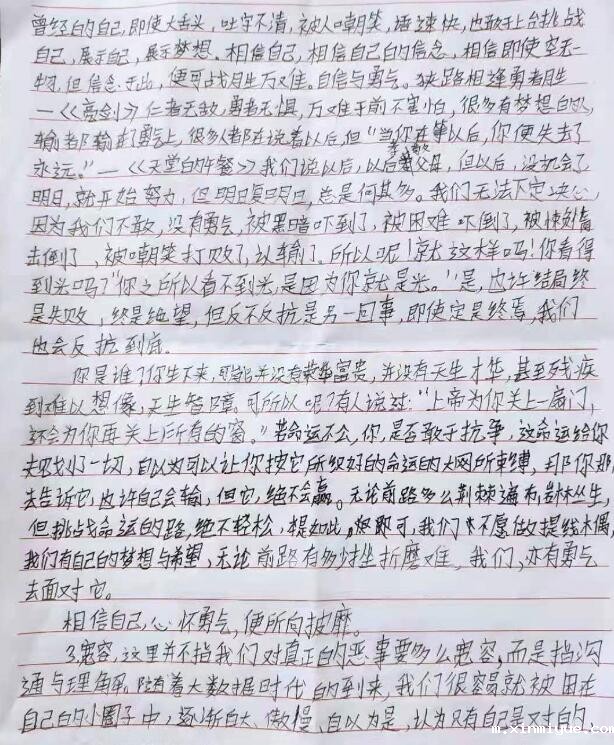 曾经的自己,即使大舌头,吐字不清,被人嘲笑,语速快,也敢于上台挑战
自己,展示自己,展示梦想。相信自己,相信自己的信念,相信即使空无一
物,但信念于此,便可战胜万难。自信与勇气。狭路相逢勇者胜
—《亮剑》仁者无敌,勇者无惧,万难于前不害怕,很多有梦想的人
输都输在了勇气上,很多人都在说着以后,但"当你在等以后,你便失去了
永远。"—《天堂的午餐》我们说以后,以后孝敬父母,但以后,没机会了
明日,就开始努力,但明日复明日,总是何其多。我们无法下定决心,
因为我们不敢,没有勇气,被黑暗吓到了,被困难吓倒了,被惰
击倒了,被嘲笑打败了,认输了。所以呢!就这样吗!你看得
到光吗?"你之所以看不到光,是因为你就是光。"是,也许结局终
是失败,终是绝望,但反不反抗是另一回事,即使定是终焉,我们
也会反抗到底。
你是谁?你生下来,可能并没有荣华富贵,并没有天生才华,甚至残疾
到难以想像,天生智障。可所以呢?有人说过:"上帝为你关上一扇门,
还会为你再关上所有的窗。"若命运不公,你,是否敢于抗争,这命运给你
规划了一切,自以为可以让你按它所织好的命运的大网所束缚,那你那
去告诉它,也许自己会输,但它,绝不会赢。无论前路多么荆棘遍布,丛生,
但挑战命运的路,绝不轻松,提如此,即可,我们不愿做提线木偶,
我们有自己的梦想与希望,无论前路有多少坐折磨难,我们,亦有勇气
去面对它。
相信自己,心怀勇气,便所向披靡。
3,宽容,这里并不指我们对真正的恶事要多么宽容,而是指沟
通与理解,随着大数据时代的到来,我们很容易就被困在
自己的小圈子中,逐渐自大、傲慢,自以为是,认为只有自己是对的
m.xinmiyue.com